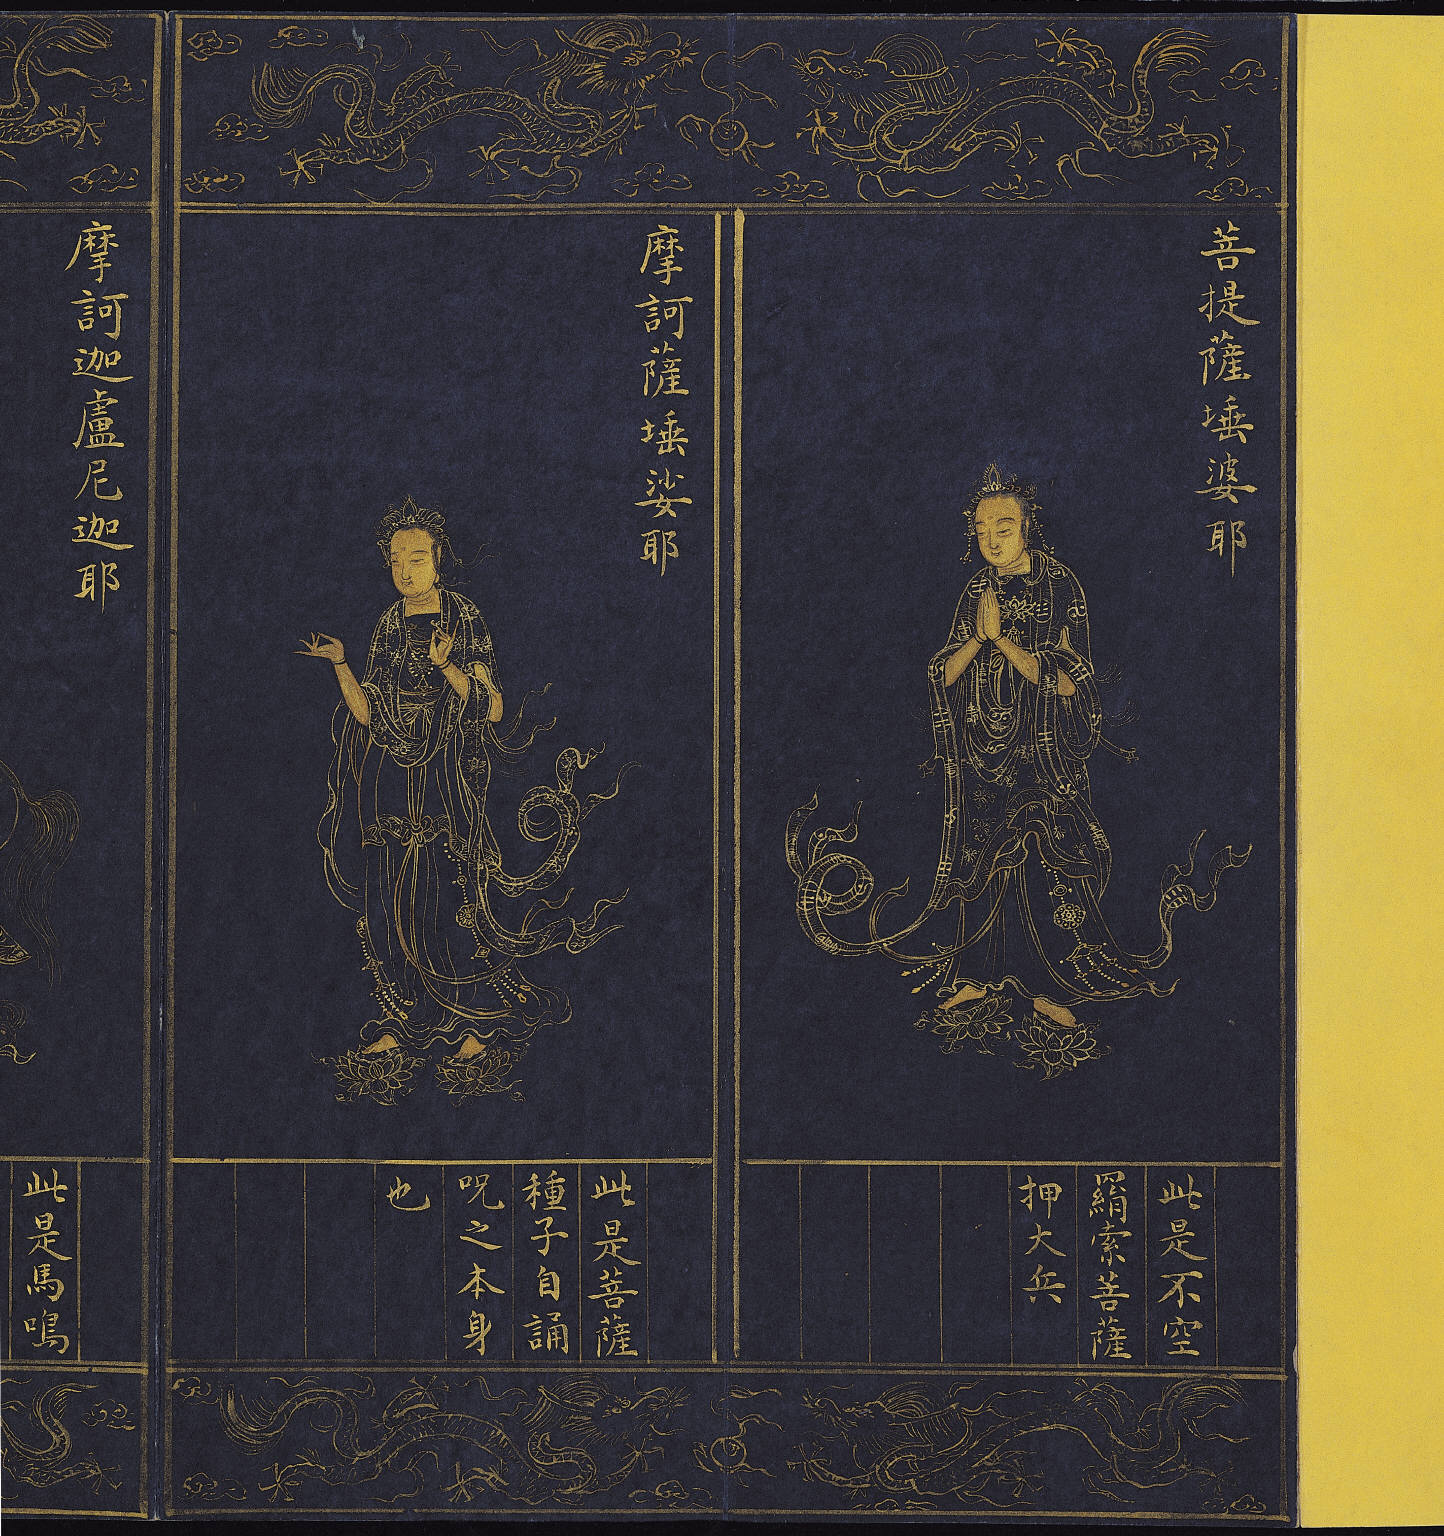 菩提薩埵婆耶
此是不空
羂索菩薩
押大兵
摩訶薩埵娑耶
此是菩薩
種子自誦
呪之本身
也
摩訶迦盧尼迦耶
此是馬鳴